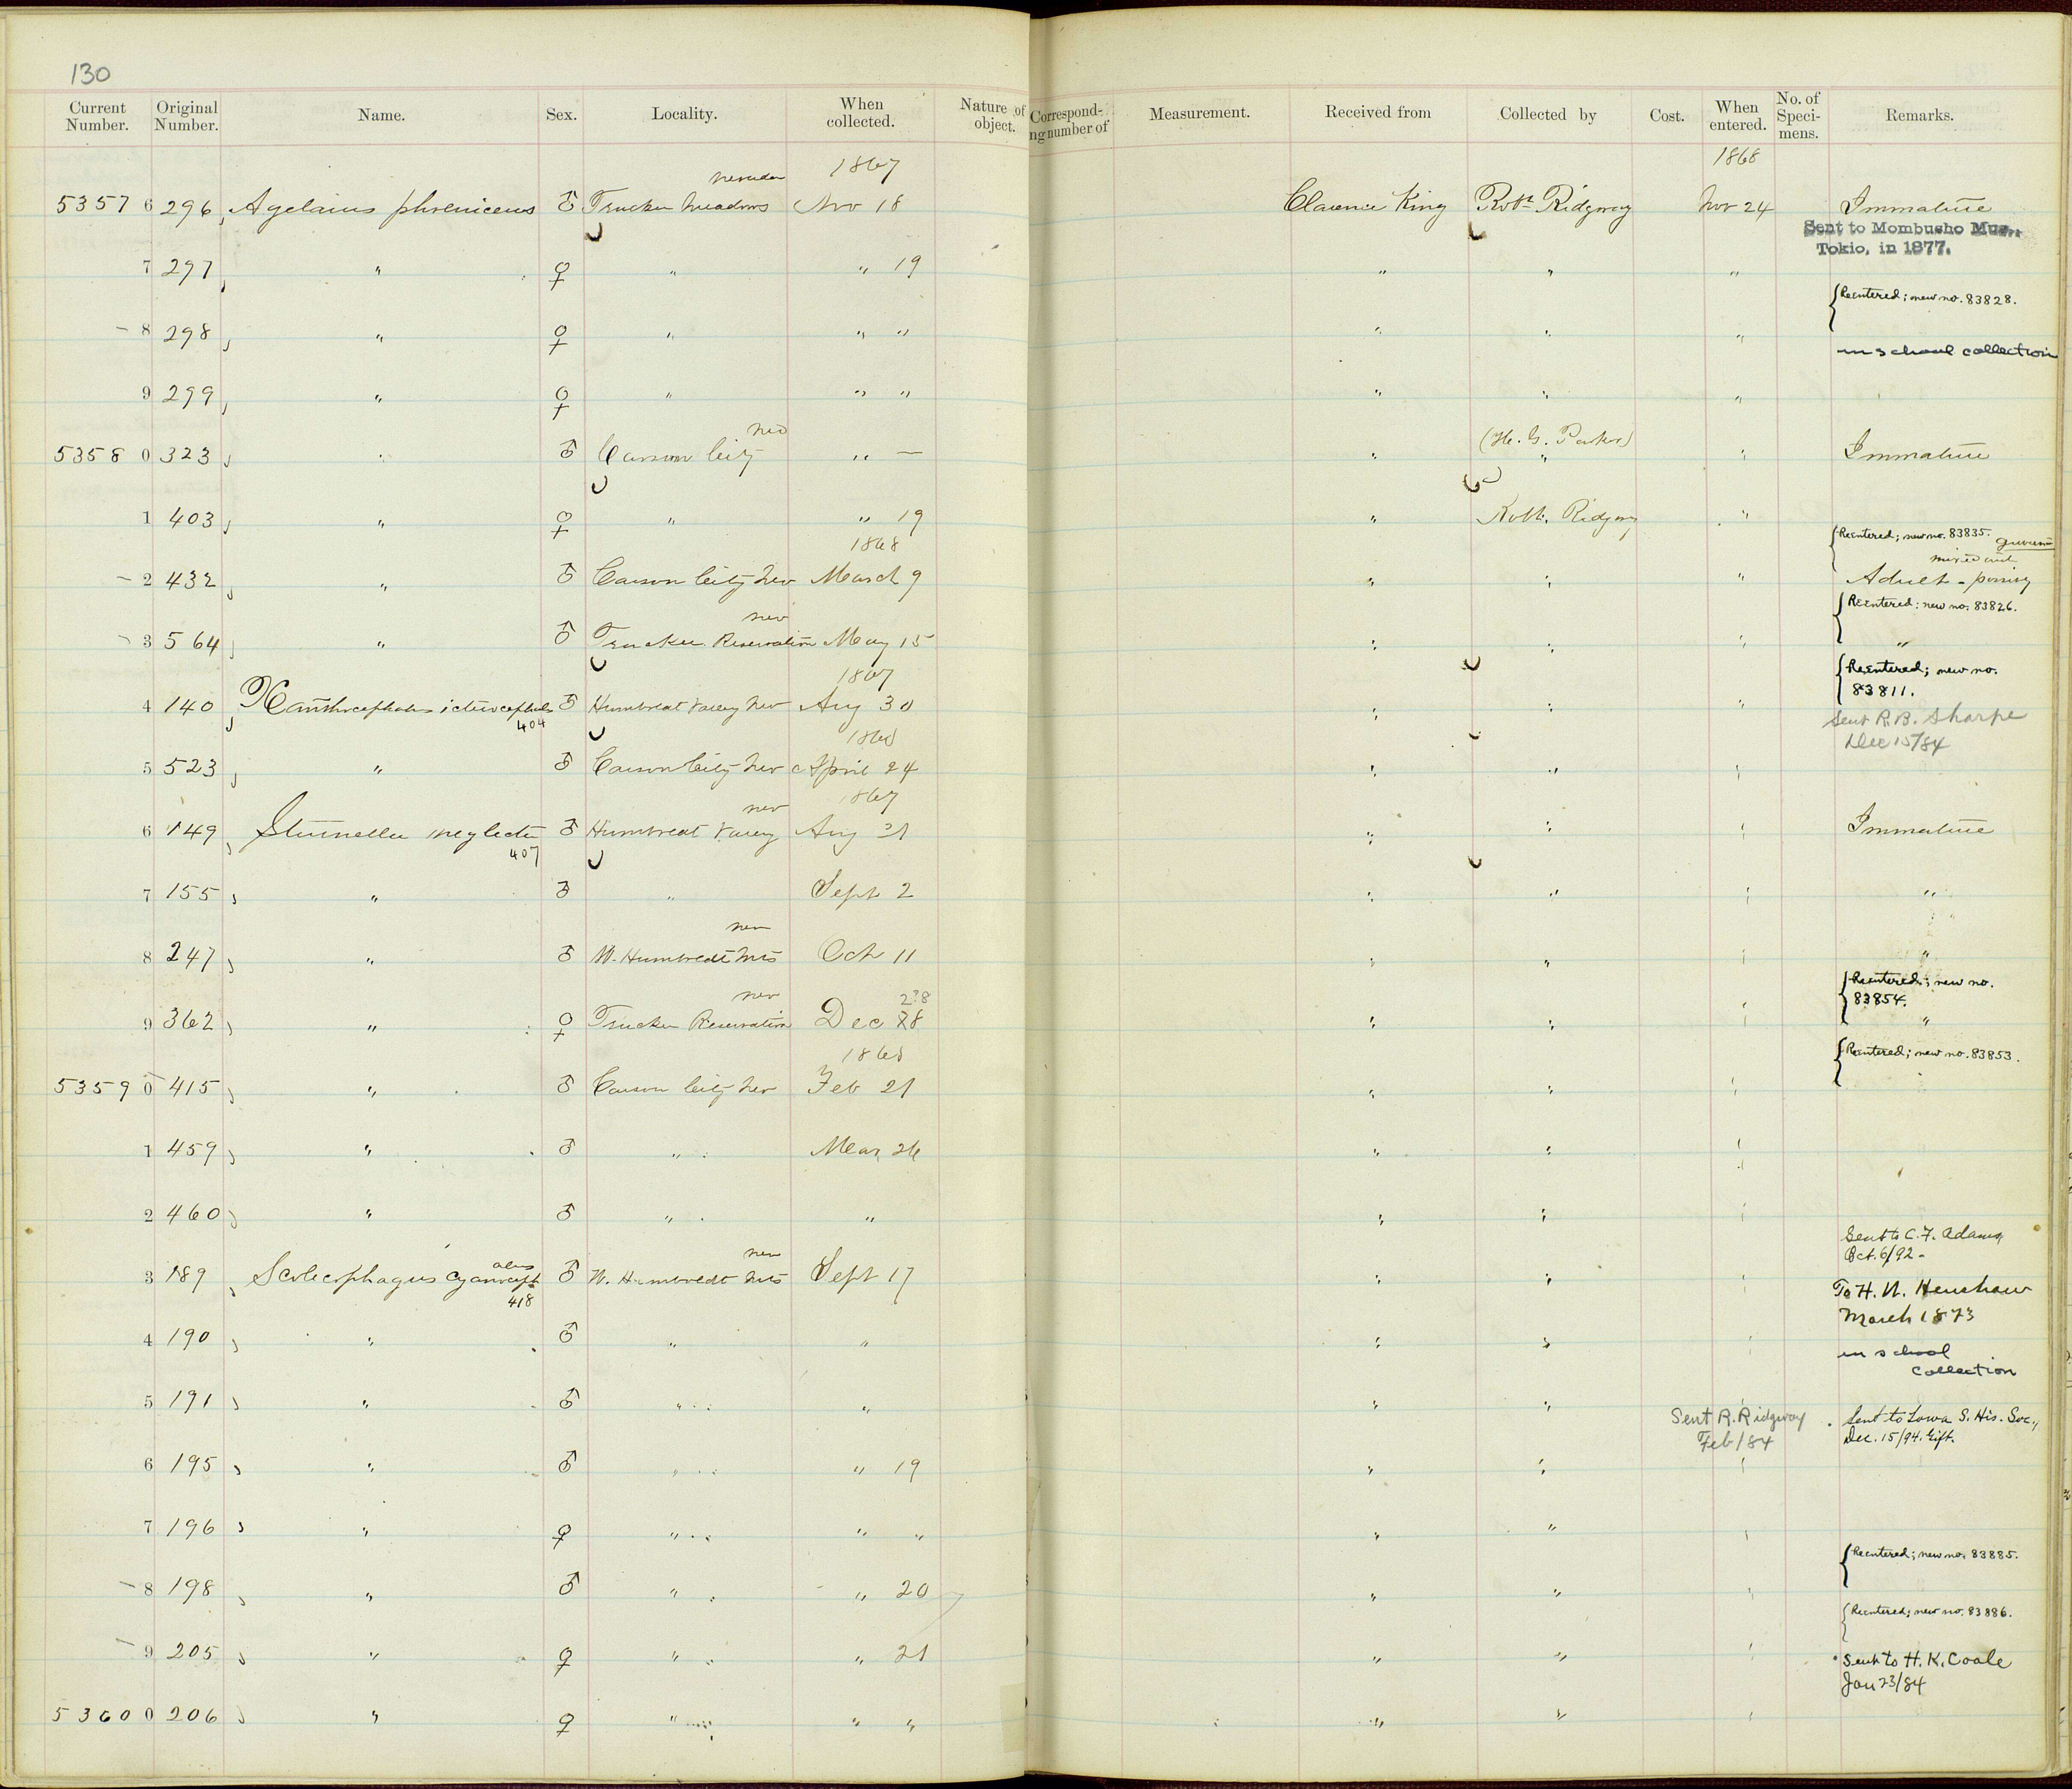 130
Current Number. Original Number. Name. Sex. Locality. When collected. Nature of object. Correspond-ng number of Measurement. Received from Collected by Cost. When entered. No. of Speci-mens. Remarks.
1867 1868
Nevada
5357 6 296 Agelaius phoeniceus ♂ Truckee Meadows Nov 18 Clarence King Robt Ridgway Nov 24 Immature
Sent to Mombusho Mus., Tokio, in 1877.
7 297 " ♀ " " 19 " " "
{Reentered; new no. 83828.
– 8 298 " ♀ " " " " " "
in school collection
9 299 " ♀ " " " " " "
Nev (H. G. Parker)
5358 0 323 " ♂ Carson City " — " " " Immature
1 403 " ♀ " " 19 " Robt. Ridgway "
1868
{Reentered; new no. 83835.
– 2 432 " ♂ Carson City Nev March 9 " " " Adult –
{Reentered; new no. 83826.
Nev
– 3 564 " ♂ Truckee Reservation May 15 " " " "
1867
{Reentered; new no. 83811.
4 140 Xanthocephalus icterocephalus ♂ Humboldt Valley Nev Aug 30 " " "
404
Sent R. B. Sharpe
Dec 15/84
1868
5 523 " ♂ Carson City Nev April 24 " " "
Nev 1867
6 149 Sturnella neglecta ♂ Humboldt Valley Aug 31 " " " Immature
407
7 155 " ♂ " Sept 2 " " " "
Nev
8 247 " ♂ W. Humboldt Mts Oct 11 " " " "
{Reentered; new no. 83854.
Nev 2?8
9 362 " ♀ Truckee Reservation Dec 28 " " " "
1868
{Reentered; new no. 83853.
5359 0 415 " ♂ Carson City Nev Feb 21 " " "
1 459 " ♂ " Mar 26 " " "
2 460 " ♂ " " " " "
Sent to C. F. Adams,
Oct. 6/92 –
Nev
3 189 Scolecophagus cyanocephalus ♂ W. Humboldt Mts Sept 17 " " "
418
To H. W. Henshaw
March 1873
4 190 " ♂ " " " " "
in school collection
5 191 " ♂ " " " " "
Sent R. Ridgway
Feb/84
Sent to Iowa S. His. Soc.,
Dec. 15/94. Gift.
6 195 " ♂ " " 19 " " "
7 196 " ♀ " " " " " "
{Reentered; new no. 83885.
– 8 198 " ♂ " " 20 " " "
{Reentered; new no. 83886.
– 9 205 " ♀ " " 21 " " "
Sent to H. K. Coale
Jan 23/84
5360 0 206 " ♀ " " " " " "